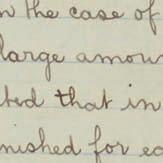 the case of
large amou
ted that in
nished for ea